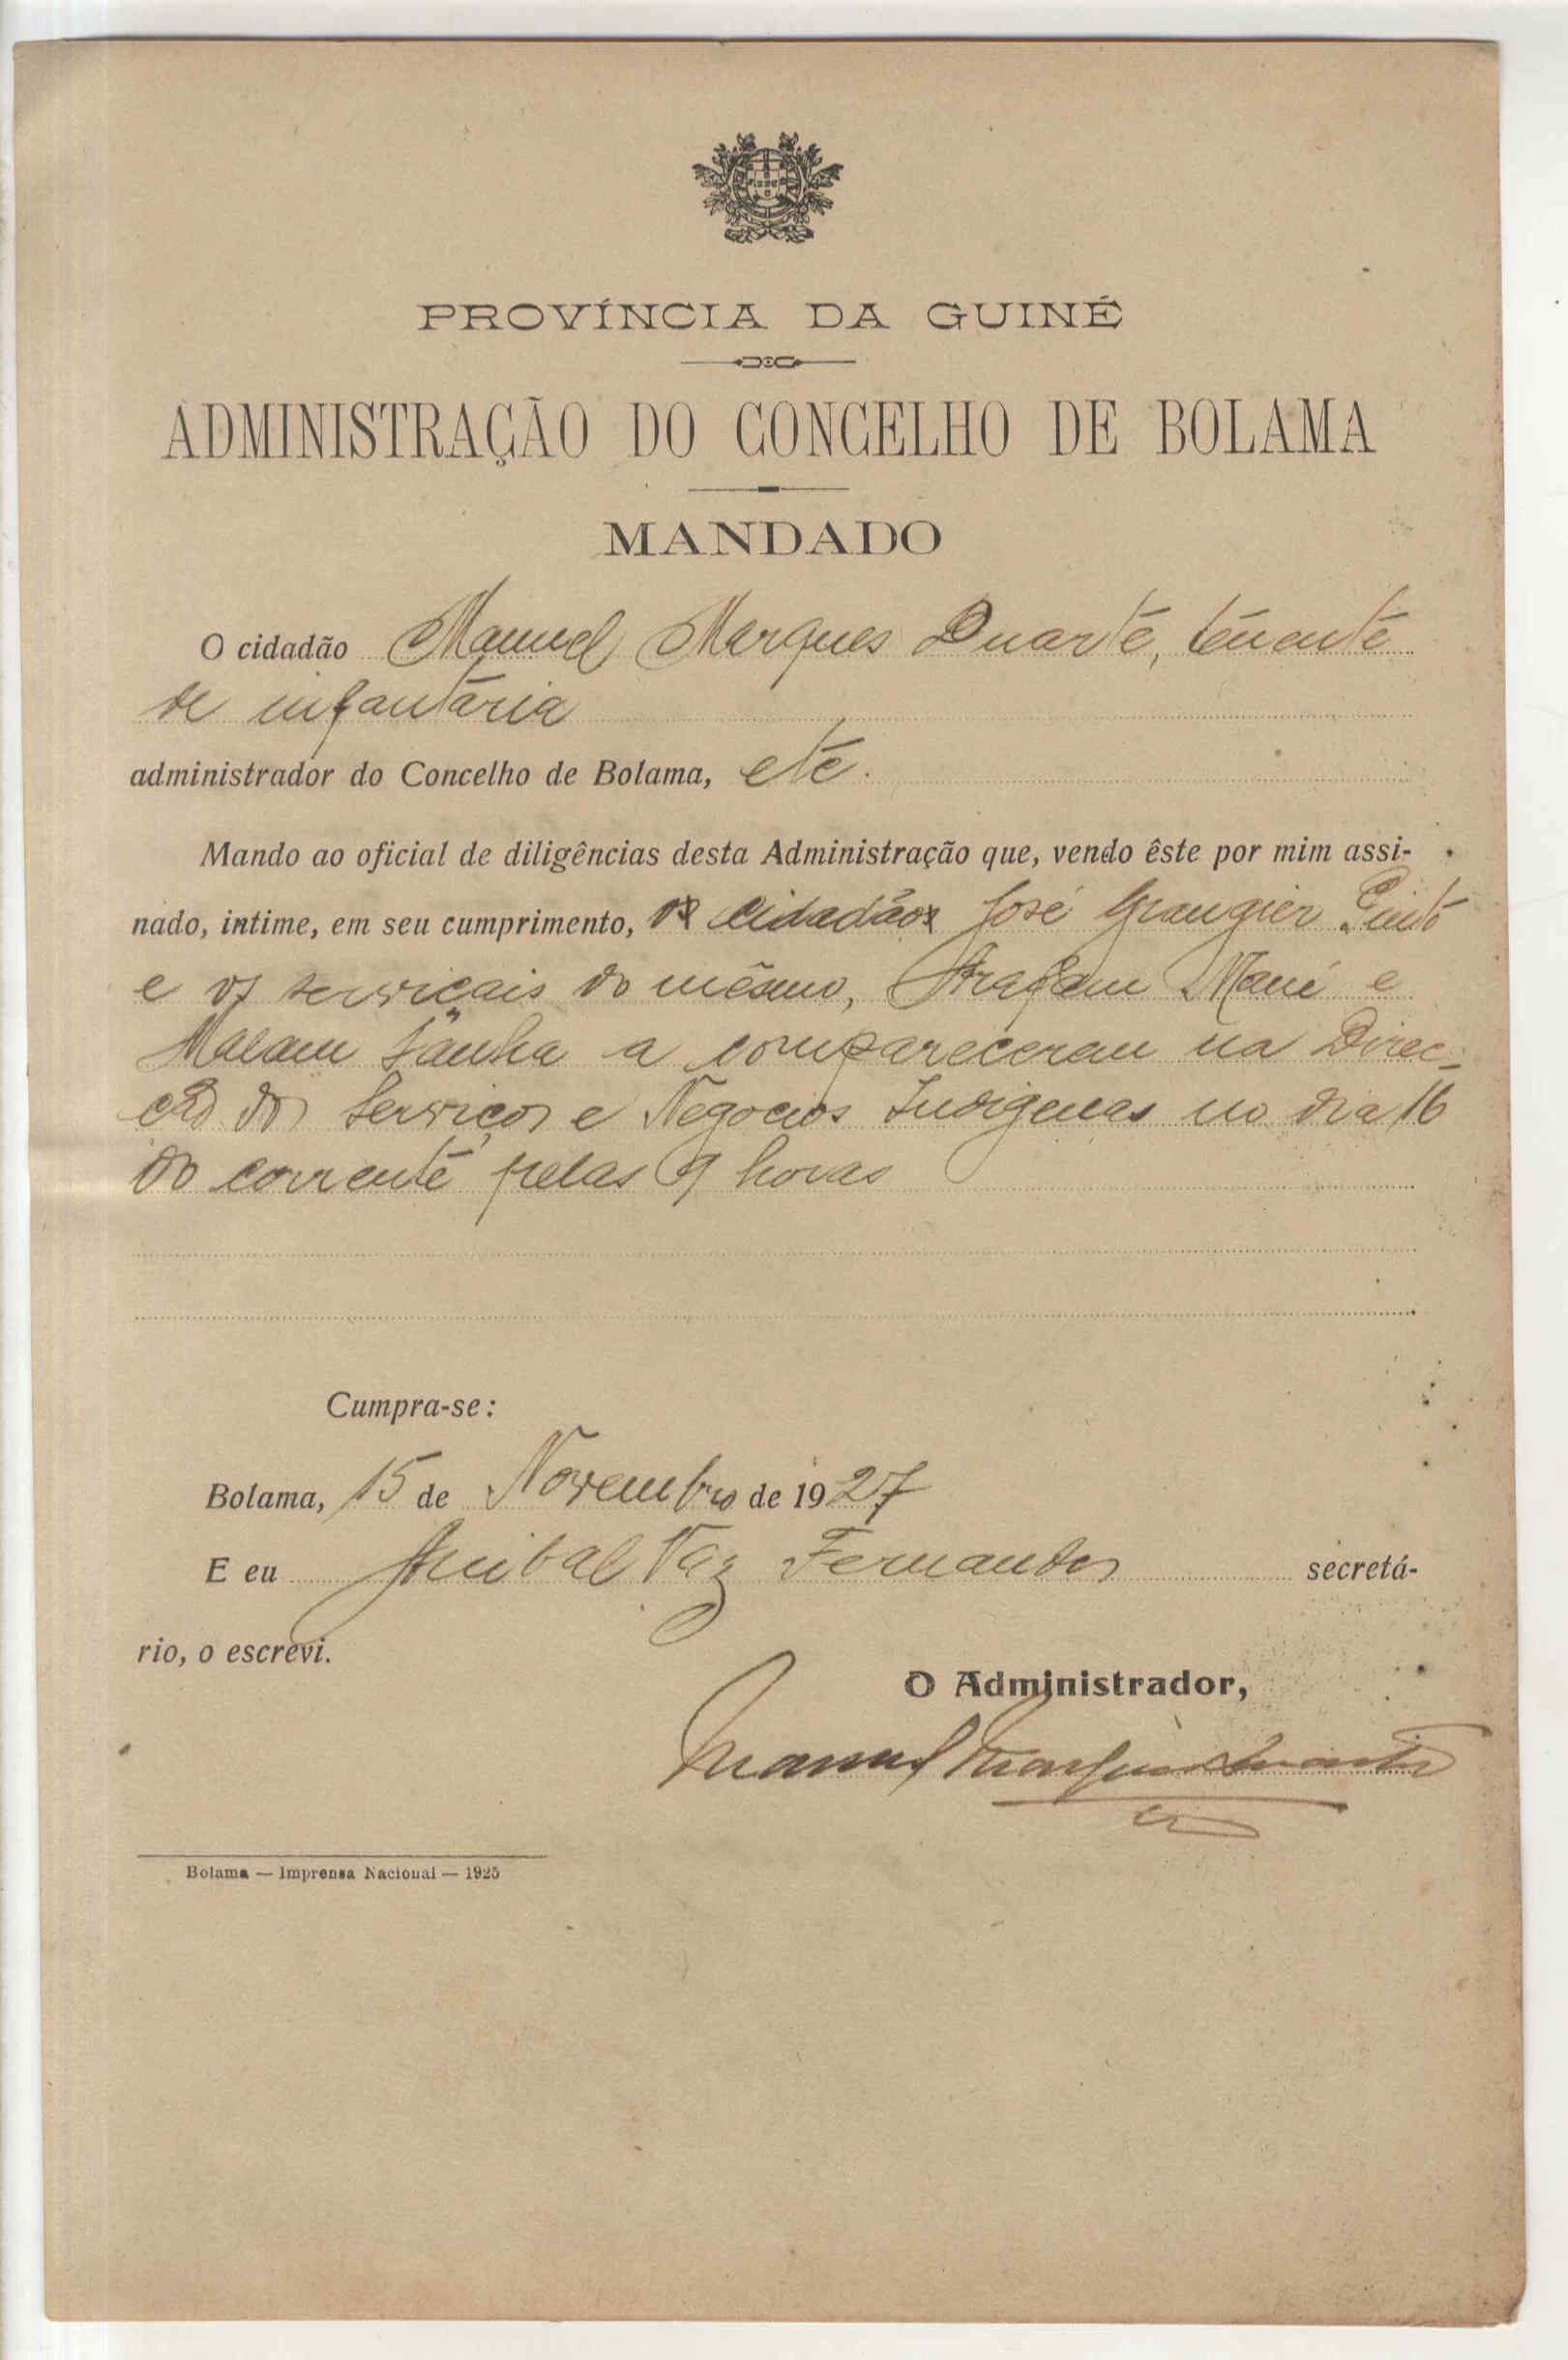 PROVÍNCIA DA GUINÉ
ADMINISTRAÇÃO DO CONCELHO DE BOLAMA
MANDADO
O cidadão Manuel Marques Duarte, tenente
de infantaria
administrador do Concelho de Bolama, etc.
Mando ao oficial de diligências desta Administração que, vendo êste por mim assi-
nado, intime, em seu cumprimento, cidadão José Grangier Pinto
e os serviçais do mesmo, Arafam Mané e
Malam Sanha a compareceram na Direc-
ção dos Serviços e Negocios Indigenas no dia 16
do corrente pelas 9 horas
Cumpra-se:
Bolama, 15 de Novembro de 1927
E eu Anibal Vaz Fernandes secretá-
rio, o escrevi.
O Administrador,
Manuel Marques Duarte
Bolama — Imprensa Nacional — 1925